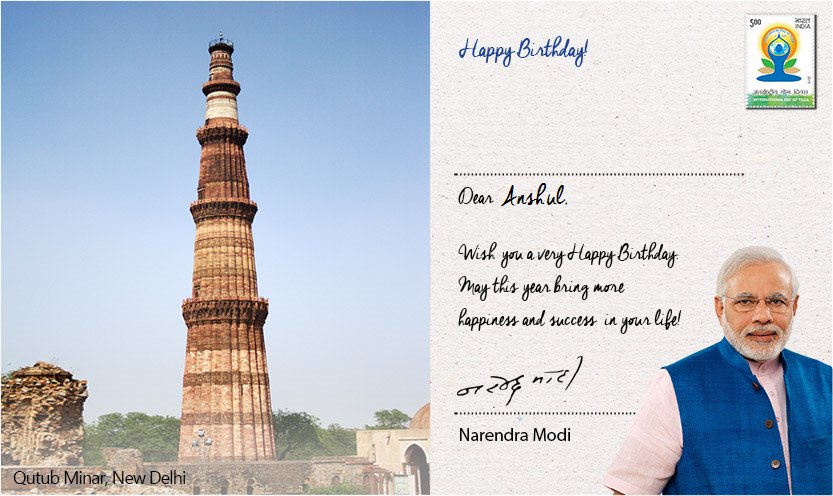 Happy Birthday!
5.00 भारत
INDIA
अंतर्राष्ट्रीय योग दिवस
INTERNATIONAL DAY OF YOGA
Dear Anshul,
Wish you a very Happy Birthday.
May this year bring more
happiness and success in your life!
नरेन्द्र मोदी
Narendra Modi
Qutub Minar, New Delhi